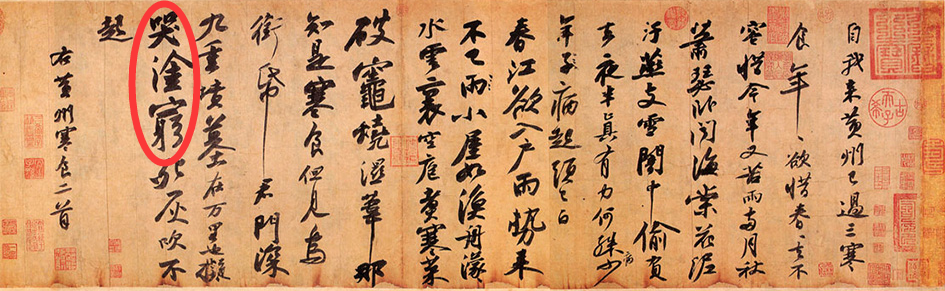 自我来黄州已過三寒
食年〻欲惜春〻去不
容惜今年又苦雨兩月秋
蕭瑟卧聞海棠花泥
汙燕支雪闇中偷負
去夜半真有力何殊病少
年子病起頭已白
春江欲入户雨勢来
不已雨小屋如漁舟濛〻
水雲裏空庖煮寒菜
破竈燒濕葦那
知是寒食但見烏
銜帋君門深
九重墳墓在万里也擬
哭塗窮死灰吹不
起
右黄州寒食二首
古希天子